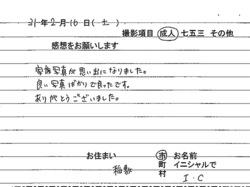 31年2月16日(土)
撮影項目 成人 七五三 その他
感想をお願いします
家族写真が思い出になりました。
良い写真ばかりで良かったです。
ありがとうございました。
お住まい 稲敷 市町村
お名前 イニシャルで I.C